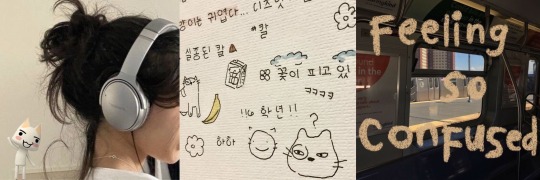 귀엽다... 디즈
실종된 칼
꽃이 피고 있
ㅋㅋㅋㅋ
학년!!
하하
?
Feeling
so
Confused